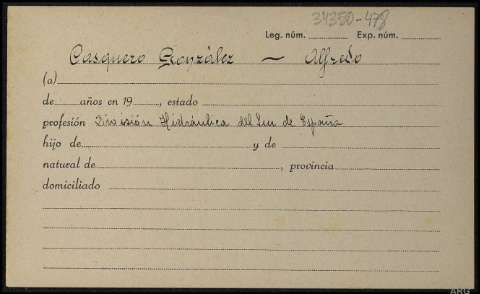 34350-478
Leg. núm. Exp. núm.
Casquero González — Alfredo
(a)
de años en 19 , estado
profesión División Hidráulica del Sur de España
hijo de y de
natural de , provincia
domiciliado
ARG